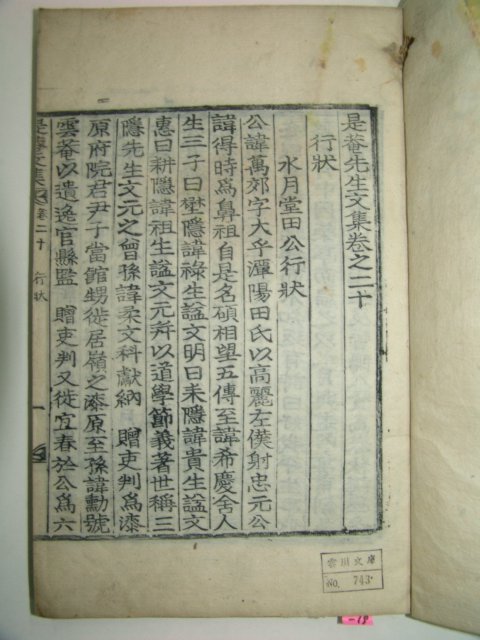 是菴先生文集卷之二十
行狀
水月堂田公行狀
公諱萬郊字大乎潭陽田氏以高麗左僕射忠元公
諱得時爲鼻祖自是名碩相望五傳至諱希慶舍人
生三子曰壄隱諱祿生諡文明曰耒隱諱貴生諡文
惠曰耕隱諱祖生諡文元並以道學節義著世稱三
隱先生文元之曾孫諱柔文科獻納 贈吏判爲漆
原府院君尹子當館甥徙居嶺之漆原至孫諱勳號
雲菴以遺逸官縣監 贈吏判又徙宜春於公爲六
是菴文集 卷二十 行狀 一
雲川文庫
No. 743
-19